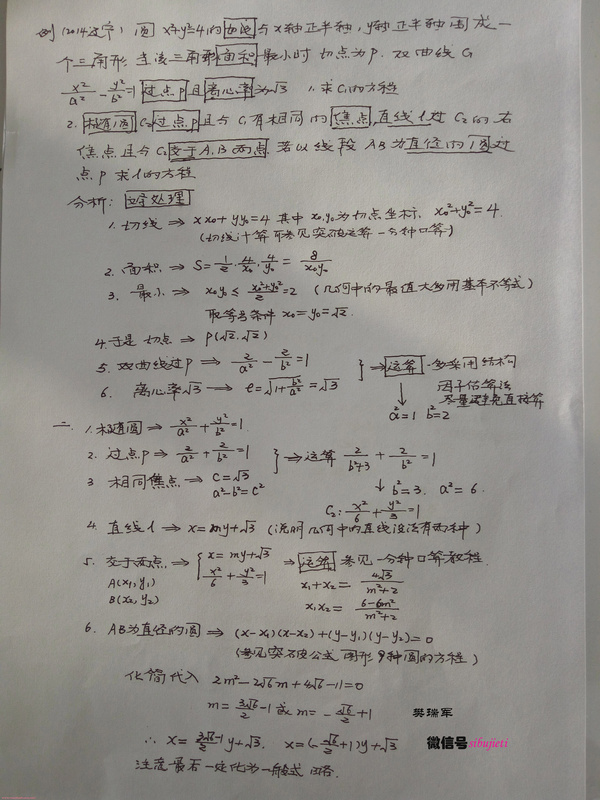 例(2014辽宁) 圆 x²+y²=4的切线与x轴正半轴,y轴正半轴围成一
个三角形 当该三角形面积最小时 切点为P. 双曲线C₁
x²/a² - y²/b² = 1 过点P且离心率为√3 1.求C₁的方程
2. 椭圆C₂过点P且与C₁有相同的焦点,直线l过C₂的右
焦点且与C₂交于A,B两点 若以线段AB为直径的圆过
点P 求l的方程
分析:
1.切线 ⇒ xx₀+yy₀=4 其中x₀,y₀为切点坐标, x₀²+y₀²=4
(切线计算可参见突破运算一分钟口算)
2. 面积 ⇒ S=1/2·4/x₀·4/y₀ = 8/x₀y₀
3. 最小 ⇒ x₀y₀ ≤ (x₀²+y₀²)/2 =2 (几何中的最值大多用基本不等式)
取等号条件 x₀=y₀=√2.
4.于是切点 ⇒ P(√2,√2)
5. 双曲线过P ⇒ 2/a² - 2/b² =1 } ⇒ 运算 多采用结构
6. 离心率√3 → e=√(1+b²/a²)=√3 因子估算法
尽量避免直接算
a²=1 b²=2
二. 1.椭圆 ⇒ x²/a² + y²/b² =1
2. 过点P ⇒ 2/a² + 2/b² =1 } ⇒ 运算 2/(b²+3) + 2/b² =1
3 相同焦点 → c=√3
a²-b²=c² ↓ b²=3. a²=6.
C₂: x²/6 + y²/3 =1
4. 直线l ⇒ x=my+√3 (说明几何中的直线设法有两种)
5. 交于两点 ⇒ { x=my+√3 ⇒ 运算 参见一分钟口算教程.
A(x₁,y₁) x²/6 + y²/3 =1 x₁+x₂= 4√3/(m²+2)
B(x₂,y₂) x₁x₂= (6-6m²)/(m²+2)
6. AB为直径的圆 ⇒ (x-x₁)(x-x₂)+(y-y₁)(y-y₂)=0
(参见突破公式图形9种圆的方程)
化简代入 2m²-2√6m+4√6-11=0
m= 3√6/2 -1 或 m= -√6/2 +1
樊瑞军
∴ x=(3√6/2 -1)y+√3, x=(-√6/2+1)y+√3
微信号sibujieti
注意最后一定化为一般式 略.